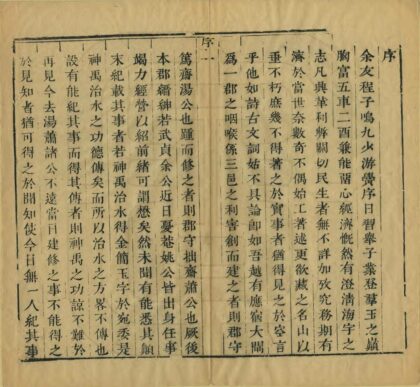 序
余友程子鳴九少游黌序日習舉子業登羣玉之巔
胸富五車二酉兼能留心經濟慨然有澄淸海宇之
志凡興革利弊關切民生者無不詳加攷究務期有
濟於當世奈數奇不偶始工著述更欲藏之名山以
垂不朽庶幾不得著之於實事者猶得見之於空言
乎他如詩古文詞姑不具論卽如吾越有應宿大閘
爲一郡之咽喉係三邑之利害創而建之者則郡守
序 一
篤齋湯公也踵而修之者則郡守拙齋蕭公也厥後
本郡縉紳若武貞余公近日憂菴姚公皆出身任事
竭力經營以紹前緒可謂懋矣然未聞有能悉其顛
末紀載其事者若神禹治水得金簡玉字於宛委是
神禹治水之功德傳矣而所以治水之方畧不傳也
設有能紀其事而得其傳者則神禹之功諒不難於
再見今去湯蕭諸公不遠當日建修之事不能得之
於見知者猶可得之於聞知使今日無一人紀其事